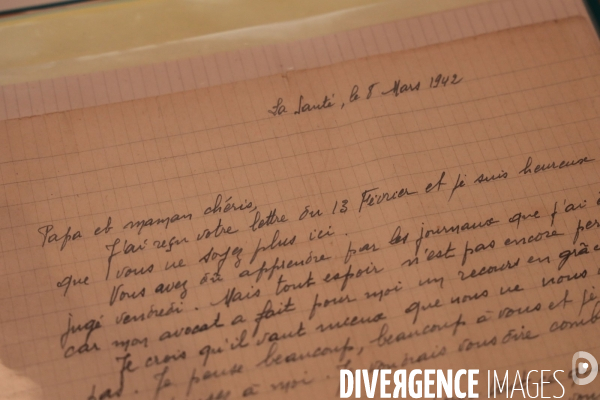 La Santé, le 8 Mars 1942
Papa et maman chéris,
J'ai reçu votre lettre du 13 Février et je suis heureuse
que vous ne soyez plus ici.
Vous avez dû apprendre par les journaux que j'ai
jugé vendredi. Mais tout espoir n'est pas encore per
car mon avocat a fait pour moi un recours en grâ
Je crois qu'il vaut mieux que nous ne nous
pas. Je pense beaucoup, beaucoup à vous et je
à moi. vous dire comb
DIVERGENCE IMAGES